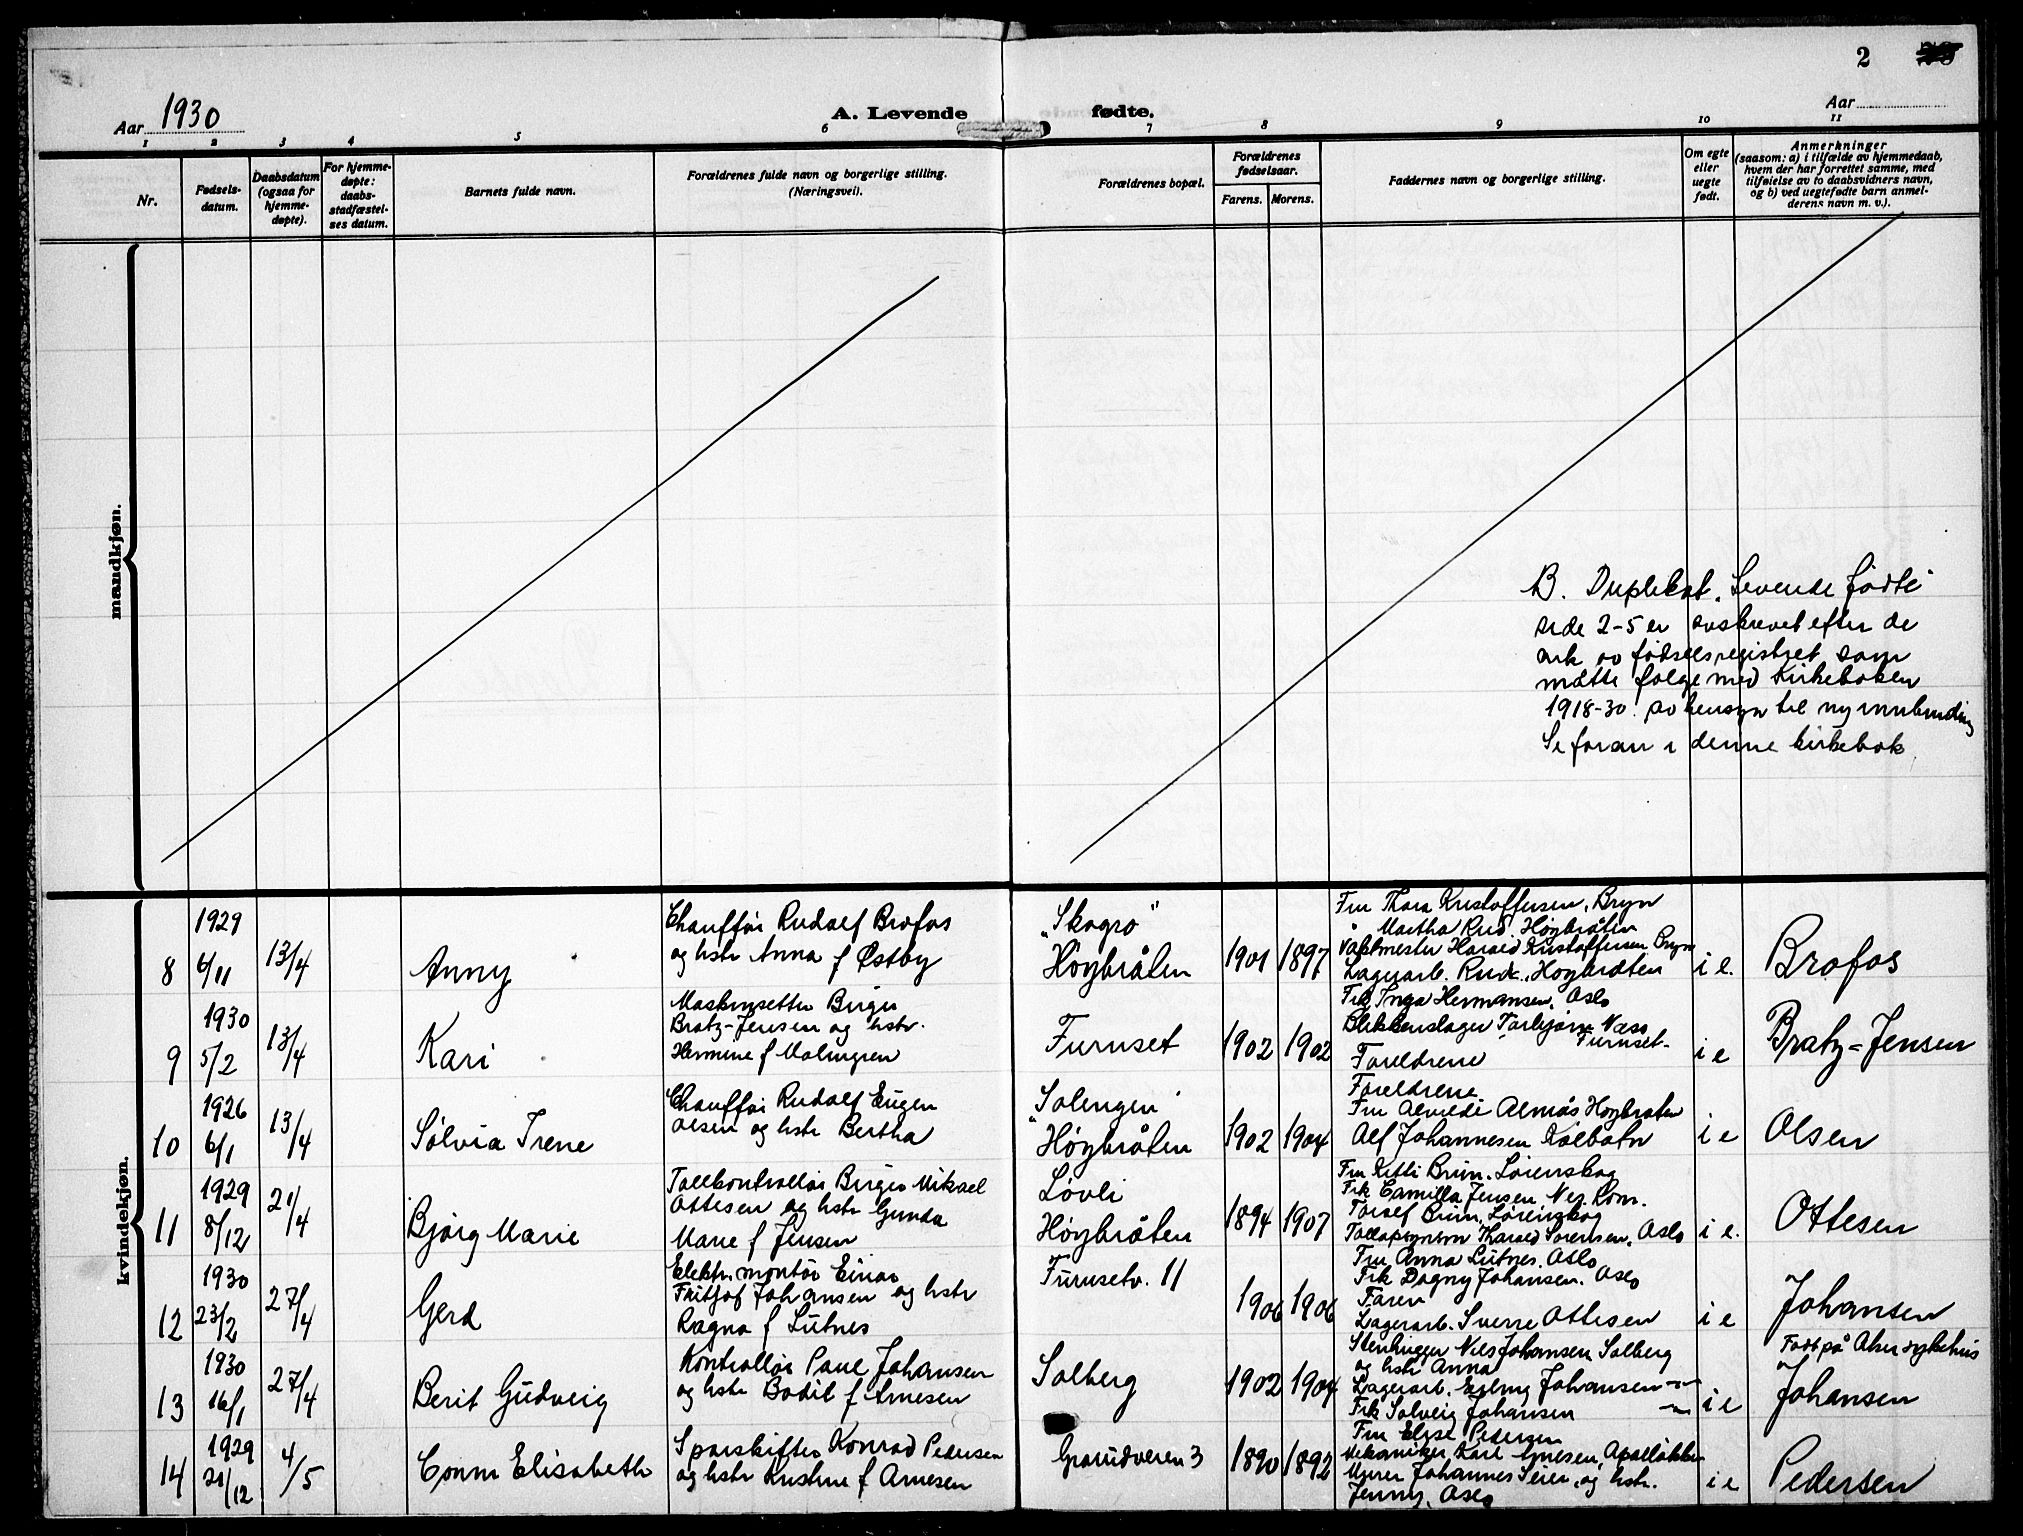 2
Aar 1930
A. Levende fødte.
Aar
1 2 3 4 5 6 7 8 9 10 11
Nr.
Fødsels-
datum.
Daabsdatum
(ogsaa for
hjemme-
døpte).
For hjemme-
døpte:
daabs-
stadfæstel-
ses datum.
Barnets fulde navn.
Forældrenes fulde navn og borgerlige stilling.
(Næringsvei).
Forældrenes bopæl.
Forældrenes
fødselsaar.
Farens. Morens.
Faddernes navn og borgerlige stilling.
Om egte
eller
uegte
født.
Anmerkninger
(saasom: a) i tilfælde av hjemmedaab,
hvem der har forrettet samme, med
tilføielse av to daabsvidners navn,
og b) ved uegtefødte barn anmel-
derens navn m. v.).
mandkjøn.
B. Duplikat. Levende fødte
side 2-5 er avskrevet efter de
ark av fødselsregistret som
måtte følge med kirkeboken
1918-30. av hensyn til ny innbinding
Se foran i denne kirkebok
kvindekjøn.
8
1929
6/11
13/4
Anny
Chauffør Rudolf Brofos
og hstr Anna f Østby
"Skogro"
Høybråten
1901
1897
Fru Thora Kristoffersen, Bryn
" Martha Rud, Høybråten
Vaktmester Harald Kristoffersen Bryn
Lagerarb. Rud, Høybråten
i e.
Brofos
9
1930
5/2
13/4
Kari
Maskinsetter Birger
Bratz-Jensen og hstr.
Hermine f Malmgren
Furuset
1902
1902
Frk Inga Hermansen, Oslo
Blikkenslager Torbjørn Næss
Furuset
Foreldrene
i e
Bratz-Jensen
10
1926
6/1
13/4
Sølvia Irene
Chauffør Rudolf Eugen
Olsen og hstr Bertha
"Solengen"
Høybråten
1902
1904
Foreldrene
Fru Alvilde Almås Høybråten
Alf Johannesen Kolbotn
i e
Olsen
11
1929
8/12
21/4
Bjørg Marie
Tollkontrollør Birger Mikael
Ottesen og hstr Gunda
Marie f Jensen
Løvli
Høybråten
1894
1907
Fru Kitti Brun, Lørenskog
Frk Camilla Jensen, Nes, Rom.
Torolf Brun, Lørenskog
Tollopsynsm Tharald Sørensen, Oslo
i e.
Ottesen
12
1930
23/2
27/4
Gerd
Elektr. montør Einar
Fritjof Johansen og hstr
Ragna f Lutnes
Furusetv. 11
1906
1906
Fru Anna Lutnes, Oslo
Frk Dagny Johansen, Oslo
Faren
Lagerarb. Sverre Ottesen
i e
Johansen
13
1930
16/1
27/4
Berit Gudveig
Kontrollør Paul Johansen
og hstr Bodil f Arnesen
Solberg
1902
1904
Stenhugger Nils Johansen Solberg
og hstr Anna
Lagerarb. Johansen —"—
Frk Solveig Johansen —"—
i e
Født på Aker sykehus
Johansen
14
1929
28/12
4/5
Conni Elisabeth
Sporskifter Konrad Pedersen
og hstr Kristine f Arnesen
Grorudveien 3
1890
1892
Fru Elise Pedersen
Mekaniker Karl Arnesen, Apalløkken
Murer Johannes Seier, og hstr.
Jenny, Oslo
i e
Pedersen